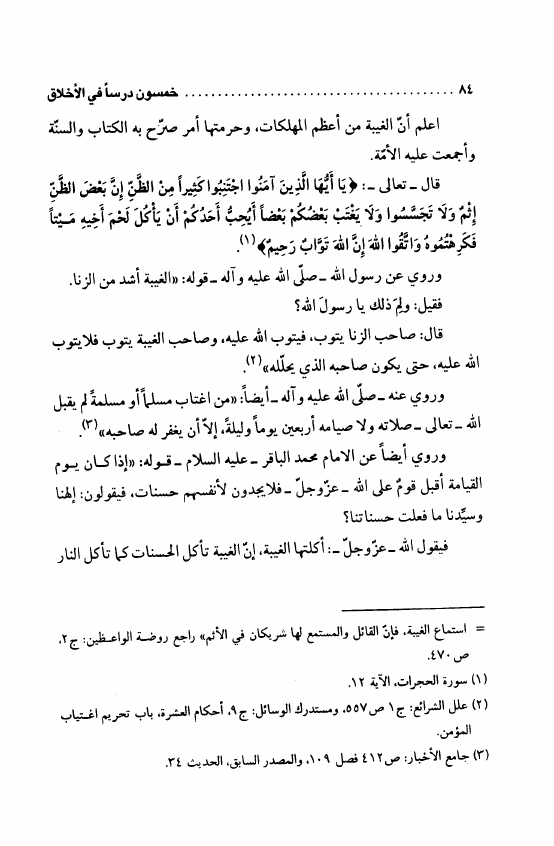 ٨٤ ........................................ خمسون درساً في الأخلاق
اعلم أنّ الغيبة من أعظم المهلكات، وحرمتها أمر صرّح به الكتاب والسنّة
وأجمعت عليه الأمّة.
قال ـ تعالى ـ: ﴿يَا أَيُّهَا الَّذِينَ آمَنُوا اجْتَنِبُوا كَثِيراً مِنْ الظَّنِّ إِنَّ بَعْضَ الظَّنِّ
إِثْمٌ وَلَا تَجَسَّسُوا وَلَا يَغْتَبْ بَعْضُكُمْ بَعْضاً أَيُحِبُّ أَحَدُكُمْ أَنْ يَأْكُلَ لَحْمَ أَخِيهِ مَيْتاً
فَكَرِهْتُمُوهُ وَاتَّقُوا اللهَ إِنَّ اللهَ تَوَّابٌ رَحِيمٌ﴾(١).
وروي عن رسول الله ـ صلّى الله عليه وآله ـ قوله: «الغيبة أشد من الزنا.
فقيل: ولِمَ ذلك يا رسولَ الله؟
قال: صاحب الزنا يتوب، فيتوب الله عليه، وصاحب الغيبة يتوب فلايتوب
الله عليه، حتى يكون صاحبه الذي يحلّله»(٢).
وروي عنه ـ صلّى الله عليه وآله ـ أيضاً: «من اغتاب مسلماً أو مسلمةً لم يقبل
الله ـ تعالى ـ صلاته ولا صيامه أربعين يوماً وليلةً، إلاّ أن يغفر له صاحبه»(٣).
وروي أيضاً عن الامام محمد الباقر ـ عليه السلام ـ قوله: «إذا كان يوم
القيامة أقبل قومٌ على الله ـ عزّوجلّ ـ فلايجدون لأنفسهم حسنات، فيقولون: إلهنا
وسيِّدنا ما فعلت حسناتنا؟
فيقول الله ـ عزّوجلّ ـ: أكلتها الغيبة، إنّ الغيبة تأكل الحسنات كما تأكل النار
= استماع الغيبة، فإنّ القائل والمستمع لها شريكان في الأثم» راجع روضة الواعظين: ج٢،
ص٤٧٠.
(١) سورة الحجرات، الآية ١٢.
(٢) علل الشرائع: ج١ ص٥٥٧، ومستدرك الوسائل: ج٩، أحكام العشرة، باب تحريم اغتياب
المؤمن.
(٣) جامع الأخبار: ص٤١٢ فصل ١٠٩، والمصدر السابق، الحديث ٣٤.